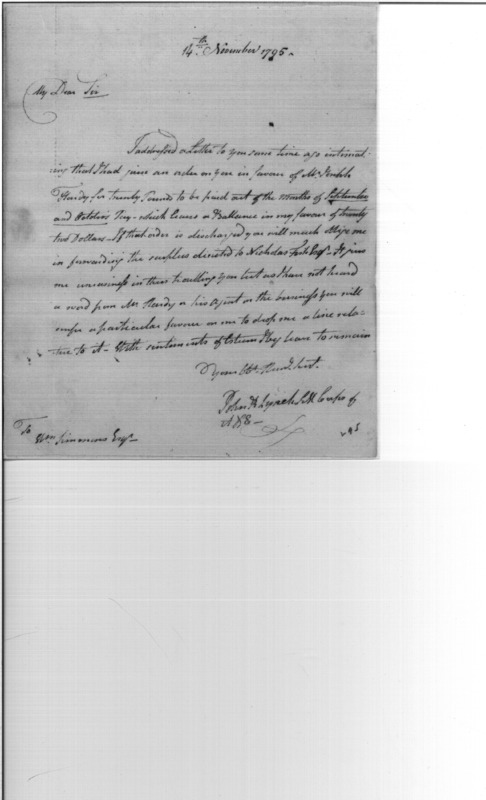 14th November 1795
My Dear Sir
I addressed a Letter to you some time ago intimat-
ing that I had given an order on you in favour of Mr Joseph
Hardy for twenty Pounds to be paid out of the months of September
and October Pay - which leaves a Ballance in my favour of twenty
two Dollars - If that order is discharged you will much oblige me
in forwarding the surplus directed to Nicholas Fish Esqr - It gives
me uneasiness in thus troubling you but as I have not heard
a word from Mr Hardy or his Agent on the business you will
confer a particular favour on me to drop me a line rela-
tive to it - With sentiments of Esteem I beg leave to remain
Your Obt. Humb. Servt.
John Lynch Corps of
A & E -
To
Wm Simmons Esqr -